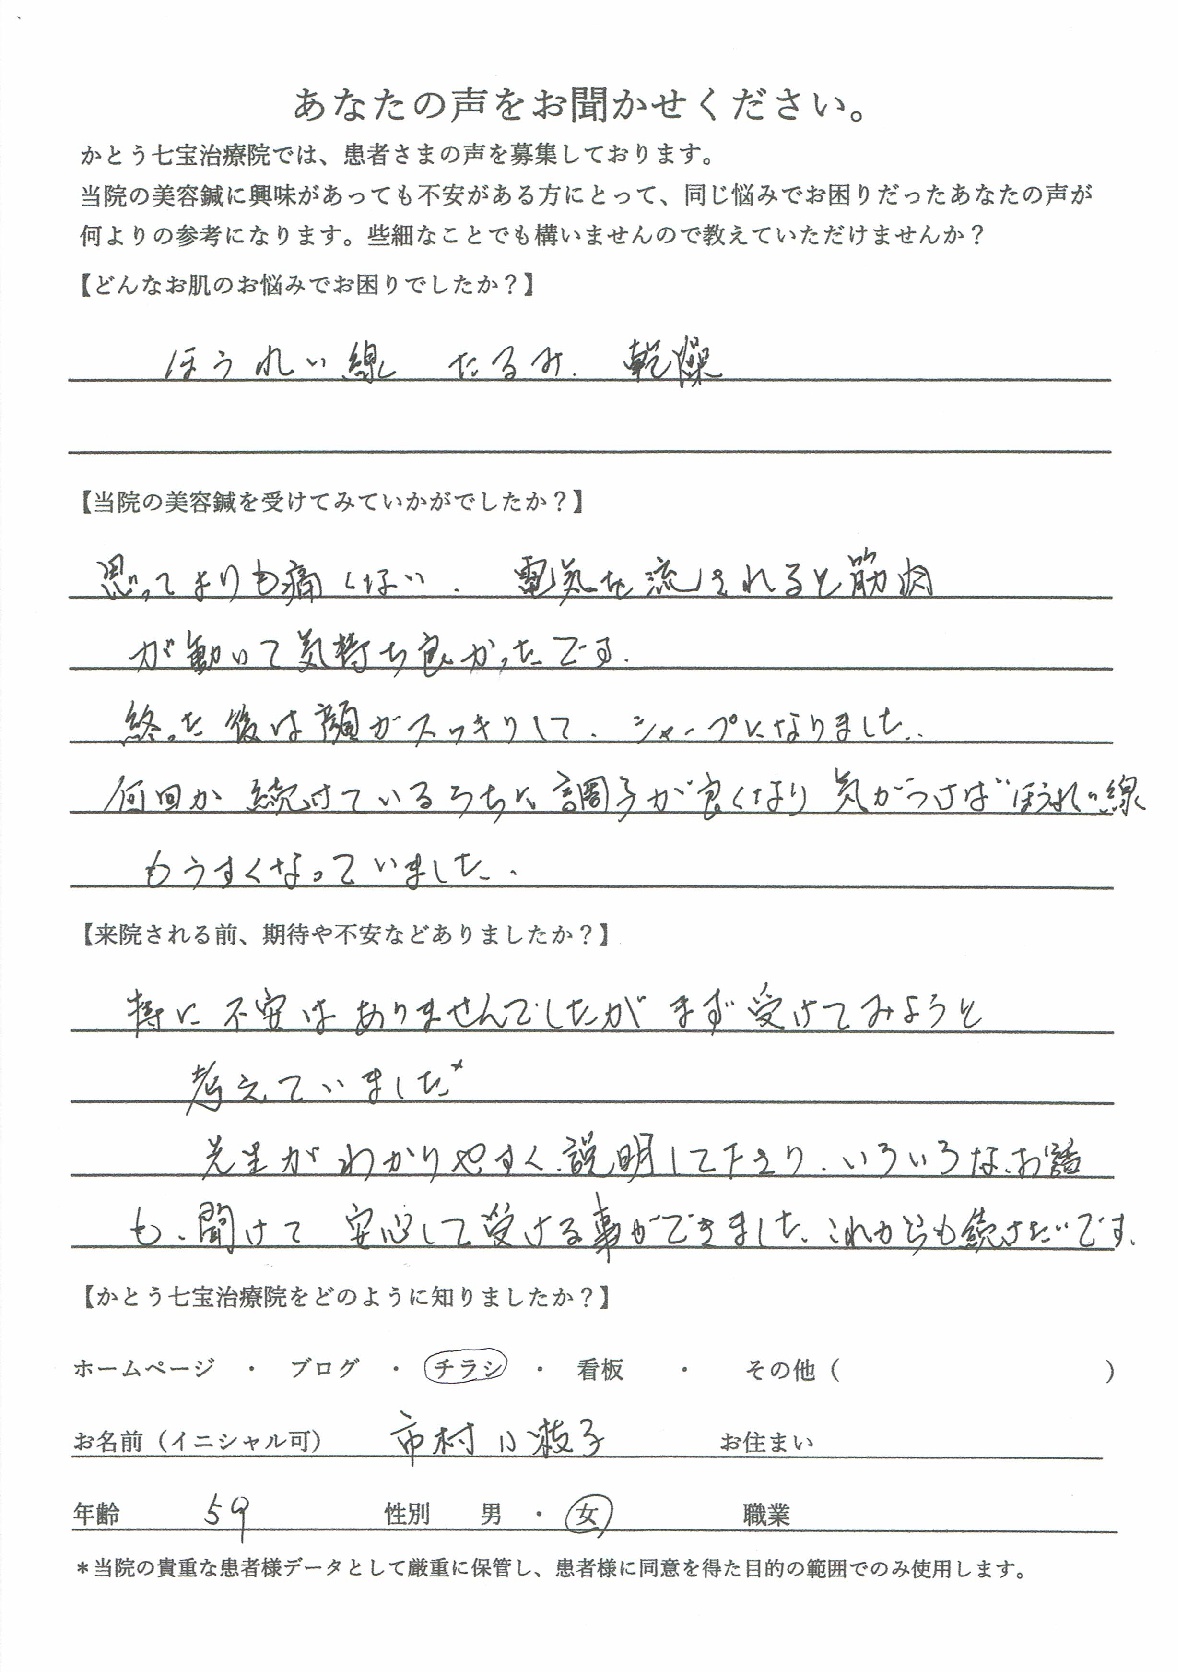 あなたの声をお聞かせください。
かとう七宝治療院では、患者さまの声を募集しております。
当院の美容鍼に興味があっても不安がある方にとって、同じ悩みでお困りだったあなたの声が
何よりの参考になります。些細なことでも構いませんので教えていただけませんか？
【どんなお肌のお悩みでお困りでしたか？】
ほうれい線 たるみ. 乾燥
【当院の美容鍼を受けてみていかがでしたか？】
思ってよりも痛くない. 電気を流されると筋肉
が動いて気持ち良かったです.
終った後は顔がスッキリして、シャープになりました.
何回か続けているうちに調子が良くなり気がつけばほうれい線
もうすくなっていました.
【来院される前、期待や不安などありましたか？】
特に不安はありませんでしたがまず受けてみようと
考えていました
先生がわかりやすく説明して下さり、いろいろなお話
も、聞けて 安心して受ける事ができました、これからも続けたいです.
【かとう七宝治療院をどのように知りましたか？】
ホームページ ・ ブログ ・ チラシ ・ 看板 ・ その他（ ）
お名前（イニシャル可） 市村 子 お住まい
年齢 59 性別 男 ・ 女 職業
*当院の貴重な患者様データとして厳重に保管し、患者様に同意を得た目的の範囲でのみ使用します。